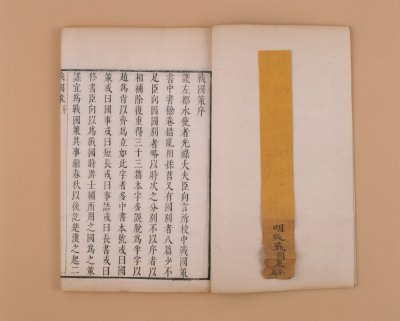 戰國策序
護左都水使者光祿大夫臣向言所校中戰國策
書中書餘卷錯亂相揉莒又有國別者八篇少不
足臣向因國別者略以時次之分別不以序者以
相補除復重得三十三篇本字多誤脫爲半字以
趙爲肖以齊爲立如此字者多中書本號或曰國
策或曰國事或曰短長或曰事語或曰長書或曰
修書臣向以爲戰國時游士輔所用之國爲之策
謀宜爲戰國策其事繼春秋以後訖楚漢之起二
戰國策序
明版戰國策